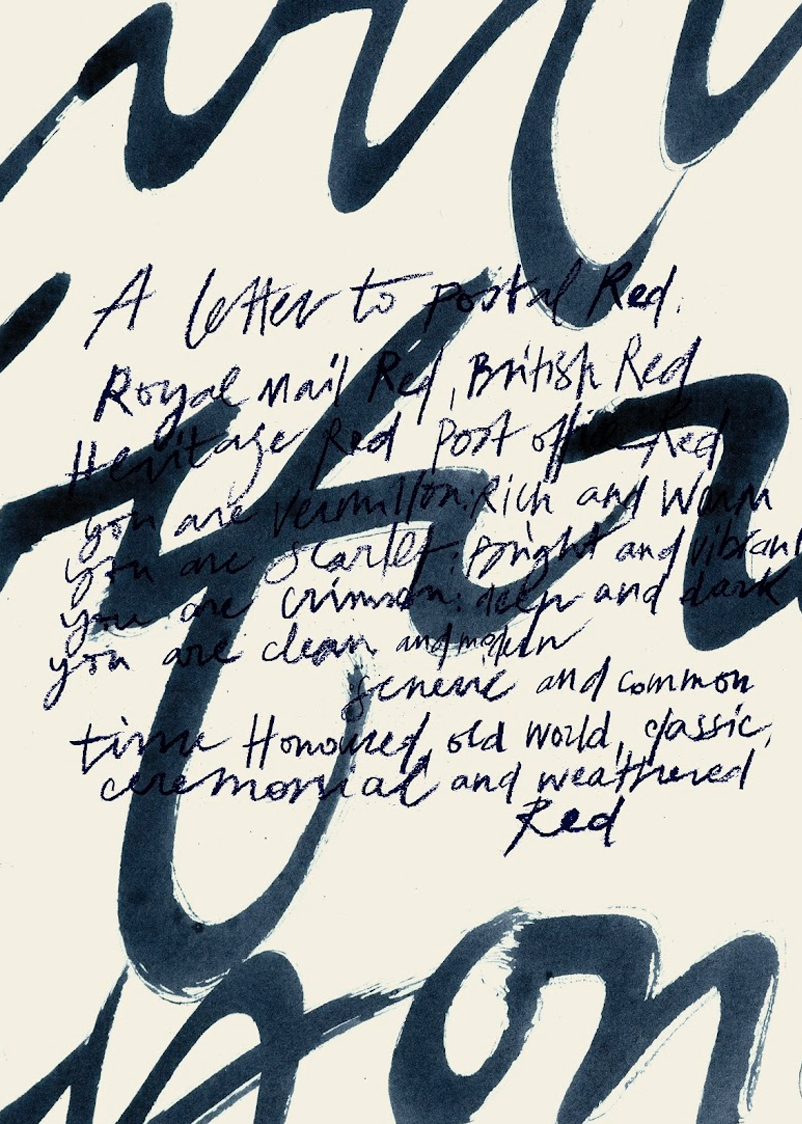 A letter to postal Red.
Royal Mail Red, British Red
Heritage Red Post office Red
you are Vermillion: Rich and Warm
you are Scarlet: Bright and vibrant
you are crimson: deep and dark
you are clean and modern
generic and common
time Honoured, old world, classic,
ceremonial and weathered
Red